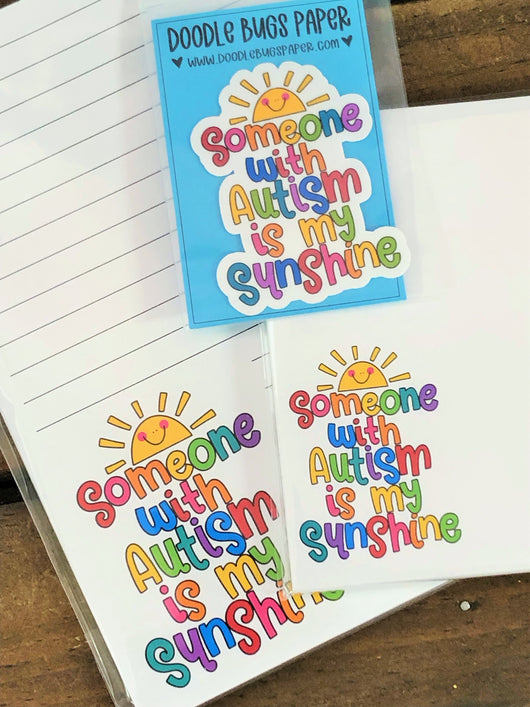 DOODLE BUGS PAPER
WWW.DOODLEBUGSPAPER.COM
Someone
with
Autism
is my
Sunshine
Someone
with
Autism
is my
Sunshine
Someone
with
Autism
is my
Sunshine